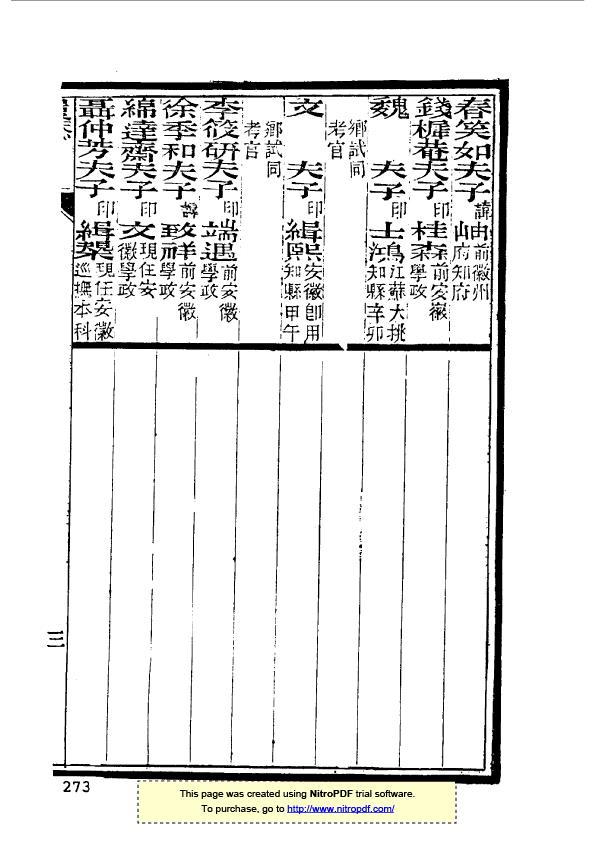 春笑如夫子 諱岫 前徽州府知府
錢樨菴夫子 印桂森 前安徽學政
魏 夫子 印士鴻 江蘇大挑知縣辛卯
鄉試同考官
文 夫子 印緝熙 安徽卽用知縣甲午
鄉試同考官
李筱研夫子 印端遇 前安徽學政
徐季和夫子 諱致祥 前安徽學政
綿達齋夫子 印文 現任安徽學政
聶仲芳夫子 印緝槼 現任安徽巡撫本科
三
273
This page was created using NitroPDF trial software.
To purchase, go to http://www.nitropdf.com/